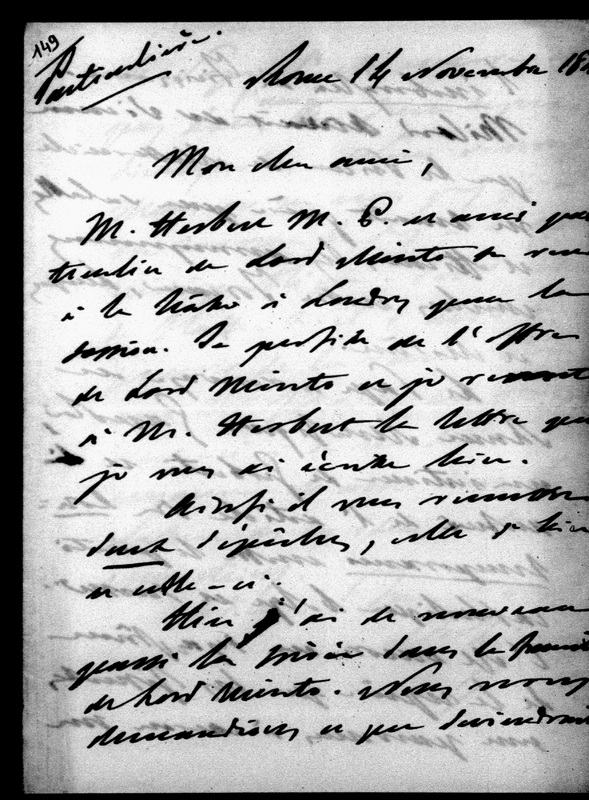 149
Particulière.
Rome 14 Novembre 18
Mon cher ami,
M. Herbert M. P. et ami par
ticulier de Lord Minto se rend
à la hâte à Londres pour la
session. Je profite de l'offre
de Lord Minto et je remet
à M. Herbert la lettre que
je vous ai écrite hier.
Ainsi il vous remettra
deux dépêches, celle d'hier
et celle-ci.
Hier j'ai de nouveau
passé la soirée dans la
de Lord Minto. Nous nous
demandions ce que deviendrait